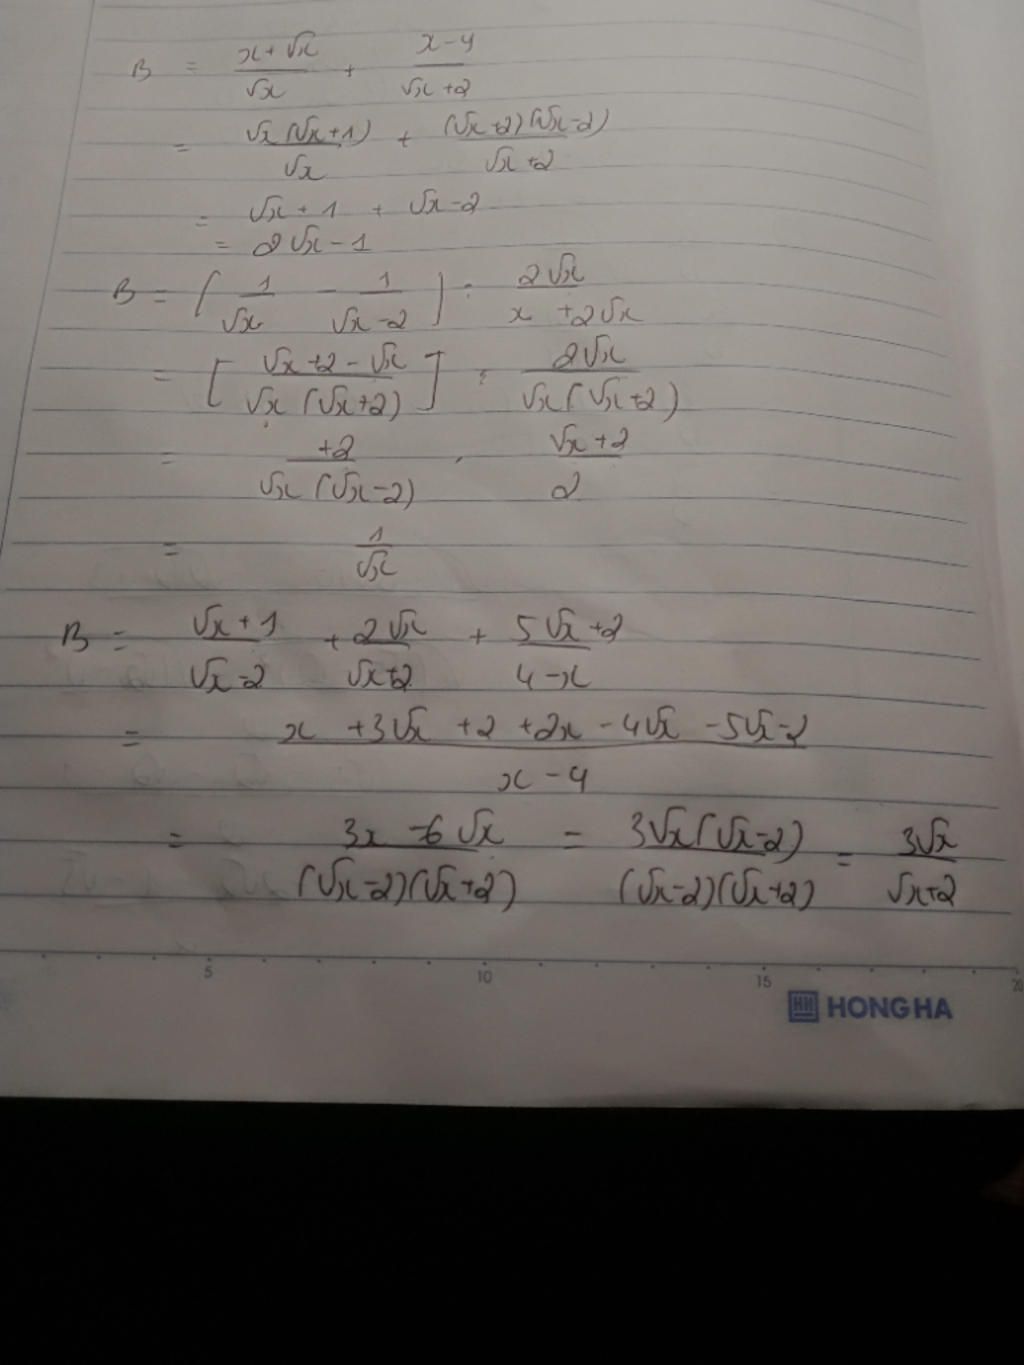 B = (x + √x)/√x + (x - 4)/(√x + 2)
= √x(√x + 1)/√x + (√x + 2)(√x - 2)/(√x + 2)
= √x + 1 + √x - 2
= 2√x - 1
B = (1/√x - 1/(√x - 2)) : 2√x/(x + 2√x)
= [(√x + 2 - √x)/(√x(√x + 2))] : 2√x/(√x(√x + 2))
= +2/(√x(√x - 2)) . (√x + 2)/2
= 1/√x
B = (√x + 1)/(√x - 2) + 2√x/(√x + 2) + (5√x + 2)/(4 - x)
= (x + 3√x + 2 + 2x - 4√x - 5√x - 2)/(x - 4)
= (3x - 6√x)/((√x - 2)(√x + 2)) = 3√x(√x - 2)/((√x - 2)(√x + 2)) = 3√x/(√x + 2)
5 10 15 20
HH HONG HA